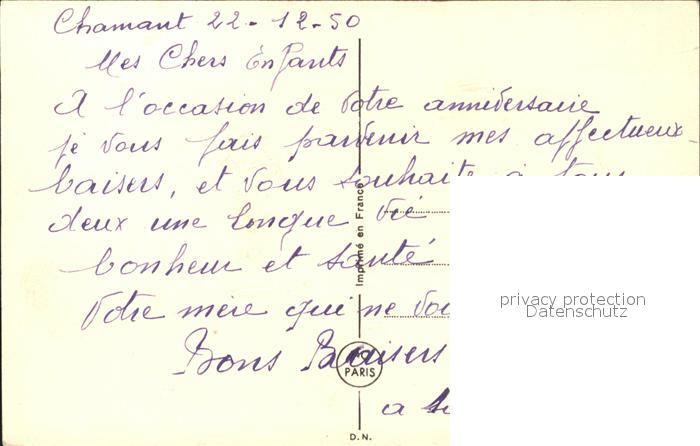 Chamant 22-12-50
Mes Chers Enfants
A l'occasion de votre anniversaire
je vous fais parvenir mes affectueux
baisers, et vous souhaite à tous
deux une longue vie
bonheur et santé
Votre mère qui ne
Bons Baisers
a
Imprimé en France
PARIS
D.N.
privacy protection
Datenschutz